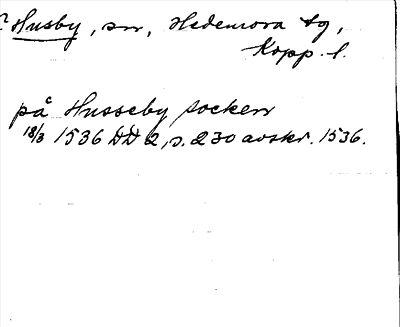 ? Husby, sn, Hedemora tg,
Kopp. l.
på Husseby socken
18/3 1536 DD 2, s. 230 avskr. 1536.